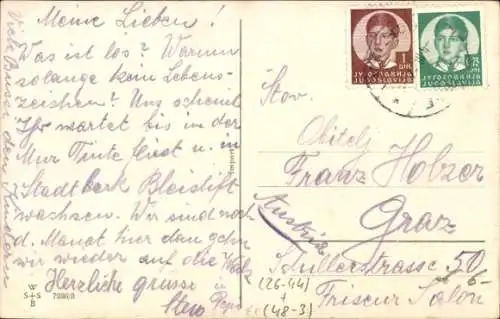 Meine Lieben!
Was ist los? Warum
solange kein Lebens-
zeichen? Uns scheint
Ihr wartet bis in der
Mur Tinte fließt u. in
Stadtberk Bleistift
wachsen. Wir sind noch
d. Monat hier dan gehn
wir wieder auf die Walz
Herzliche grusse
Viele Bussi den Kindern
W
S+S
B
Import
ЈУГОСЛАВИЈА
JUGOSLAVIJA
1 DIN.
ЈУГОСЛАВИЈА
JUGOSLAVIJA
Štov.
Obitelj
Franz Holzer
Graz
Austria
Schillerstrasse 50
Friseur Salon
(26-44)
+
(48-3)